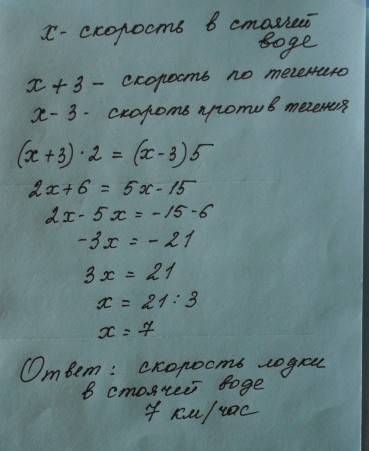 x - скорость в стоячей
воде
x + 3 - скорость по течению
x - 3 - скороть против течения
(x+3)·2 = (x-3)5
2x+6 = 5x-15
2x-5x = -15-6
-3x = -21
3x = 21
x = 21:3
x = 7
Ответ: скорость лодки
в стоячей воде
7 км/час